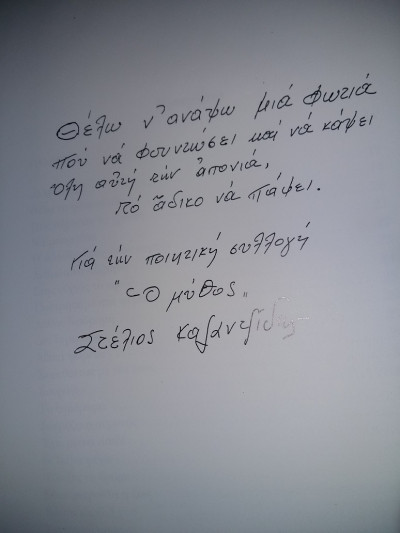 Θέλω ν' ανάψω μιά φωτιά
πού νά φουντώσει καί νά κάψει
όλη αὐτή τήν ἀπονιά,
τό ἄδικο νά πάψει.
Γιά τήν ποιητική συλλογή
"Ο μύθος"
Στέλιος Καζαντζίδης